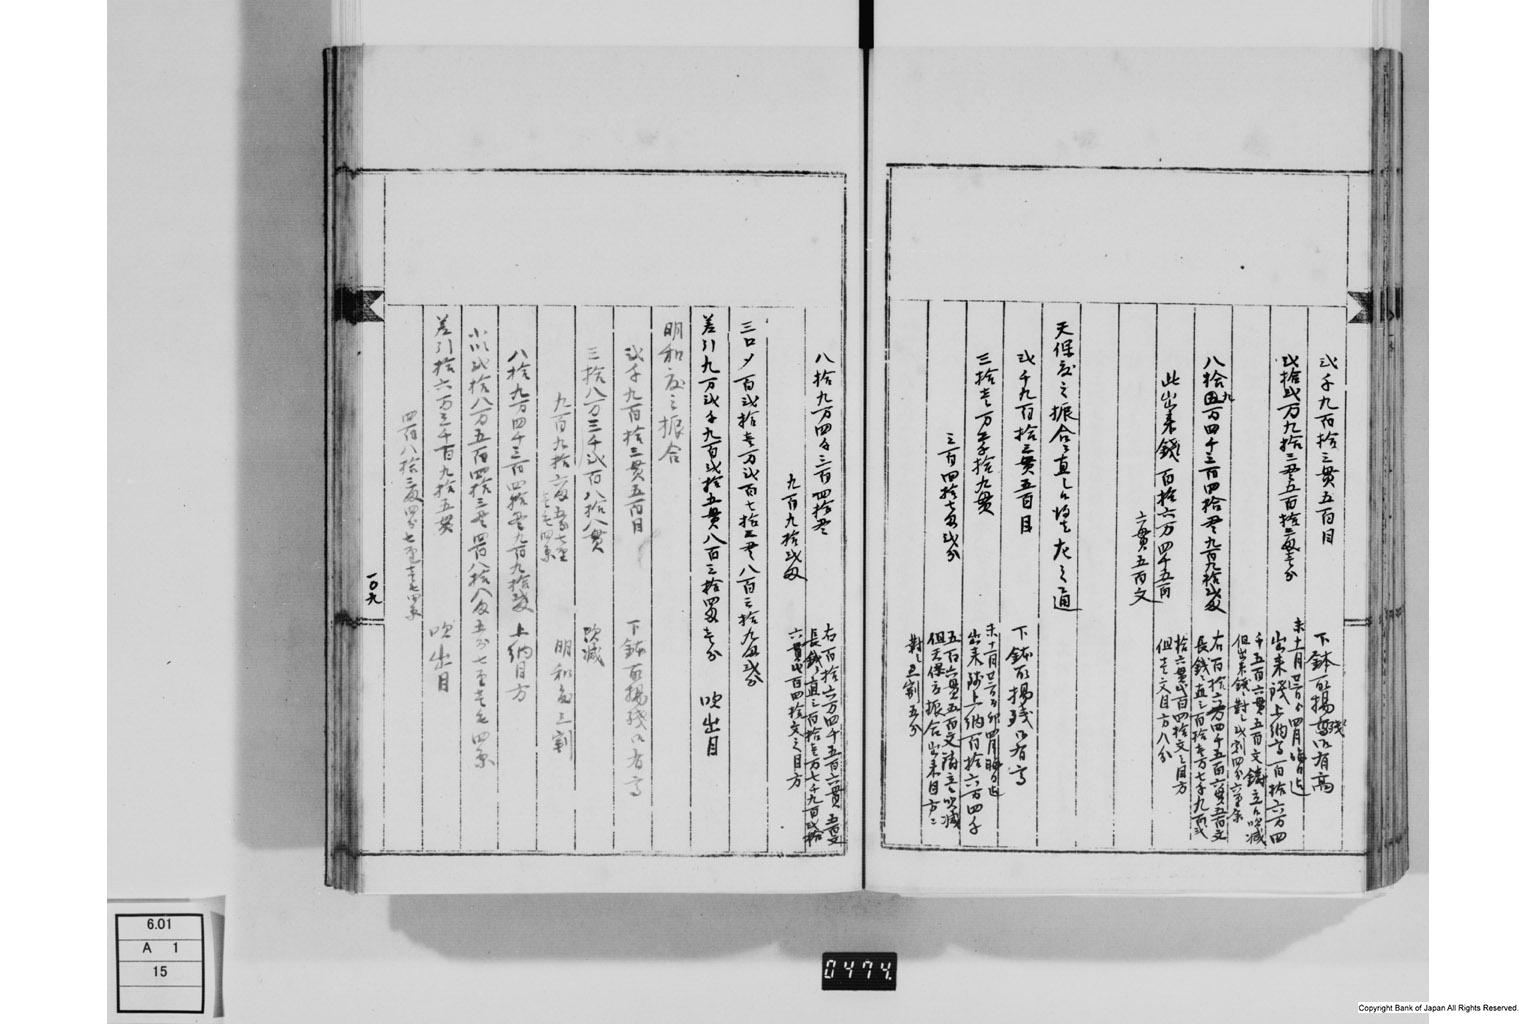 弐千九百拾三貫五百目
下鉢百揚残以有高
弐拾弐万九拾三〆五百拾三匁壱分
出来銭上納高百拾六万四
千五百六貫五百文鋳立之吹減
但出来銭ニ對シ弐割四分六厘余
八拾九万四千三百四拾〆九百九拾弐匁
右百拾六万四千五百六貫五百文
長銭ニ直シ百拾壱万七千九百弐
拾六貫弐百四拾文之目方
但壱文目方八分
此出来銭百拾六万四千五百
六貫五百文
天保度之振合ニ直シ候得ハ左之通
弐千九百拾三貫五百目
下鉢百揚残以有高
三拾壱万五千拾九貫
三百四拾七匁弐分
出来銭上納百拾六万四千
五百六貫五百文鋳立之吹減
但天保度振合出来目方ニ
對シ三割五分
八拾九万四千三百四拾〆
九百九拾弐匁
右百拾六万四千五百六貫五百文
長銭ニ直シ百拾壱万七千九百弐拾
六貫弐百四拾文之目方
三口〆百弐拾壱万弐百七拾三〆八百三拾九匁弐分
差引九万弐千九百弐拾五貫八百三拾四匁壱分 吹出目
明和度之振合
弐千九百拾三貫五百目
下鉢百揚残以有高
三拾八万三千弐百八拾八貫
九百九拾六匁五分七厘
壱毛四糸
吹減
明和度三割
八拾九万四千三百四拾〆九百九拾弐匁 上納目方
小以弐拾八万五百四拾三〆四百八拾八匁五分七厘壱毛四糸
差引拾六万三千百九拾五貫
四百八拾三匁四分七厘壱毛四糸
吹出目
一〇九
6.01
A 1
15
0474.
Copyright Bank of Japan All Rights Reserved.